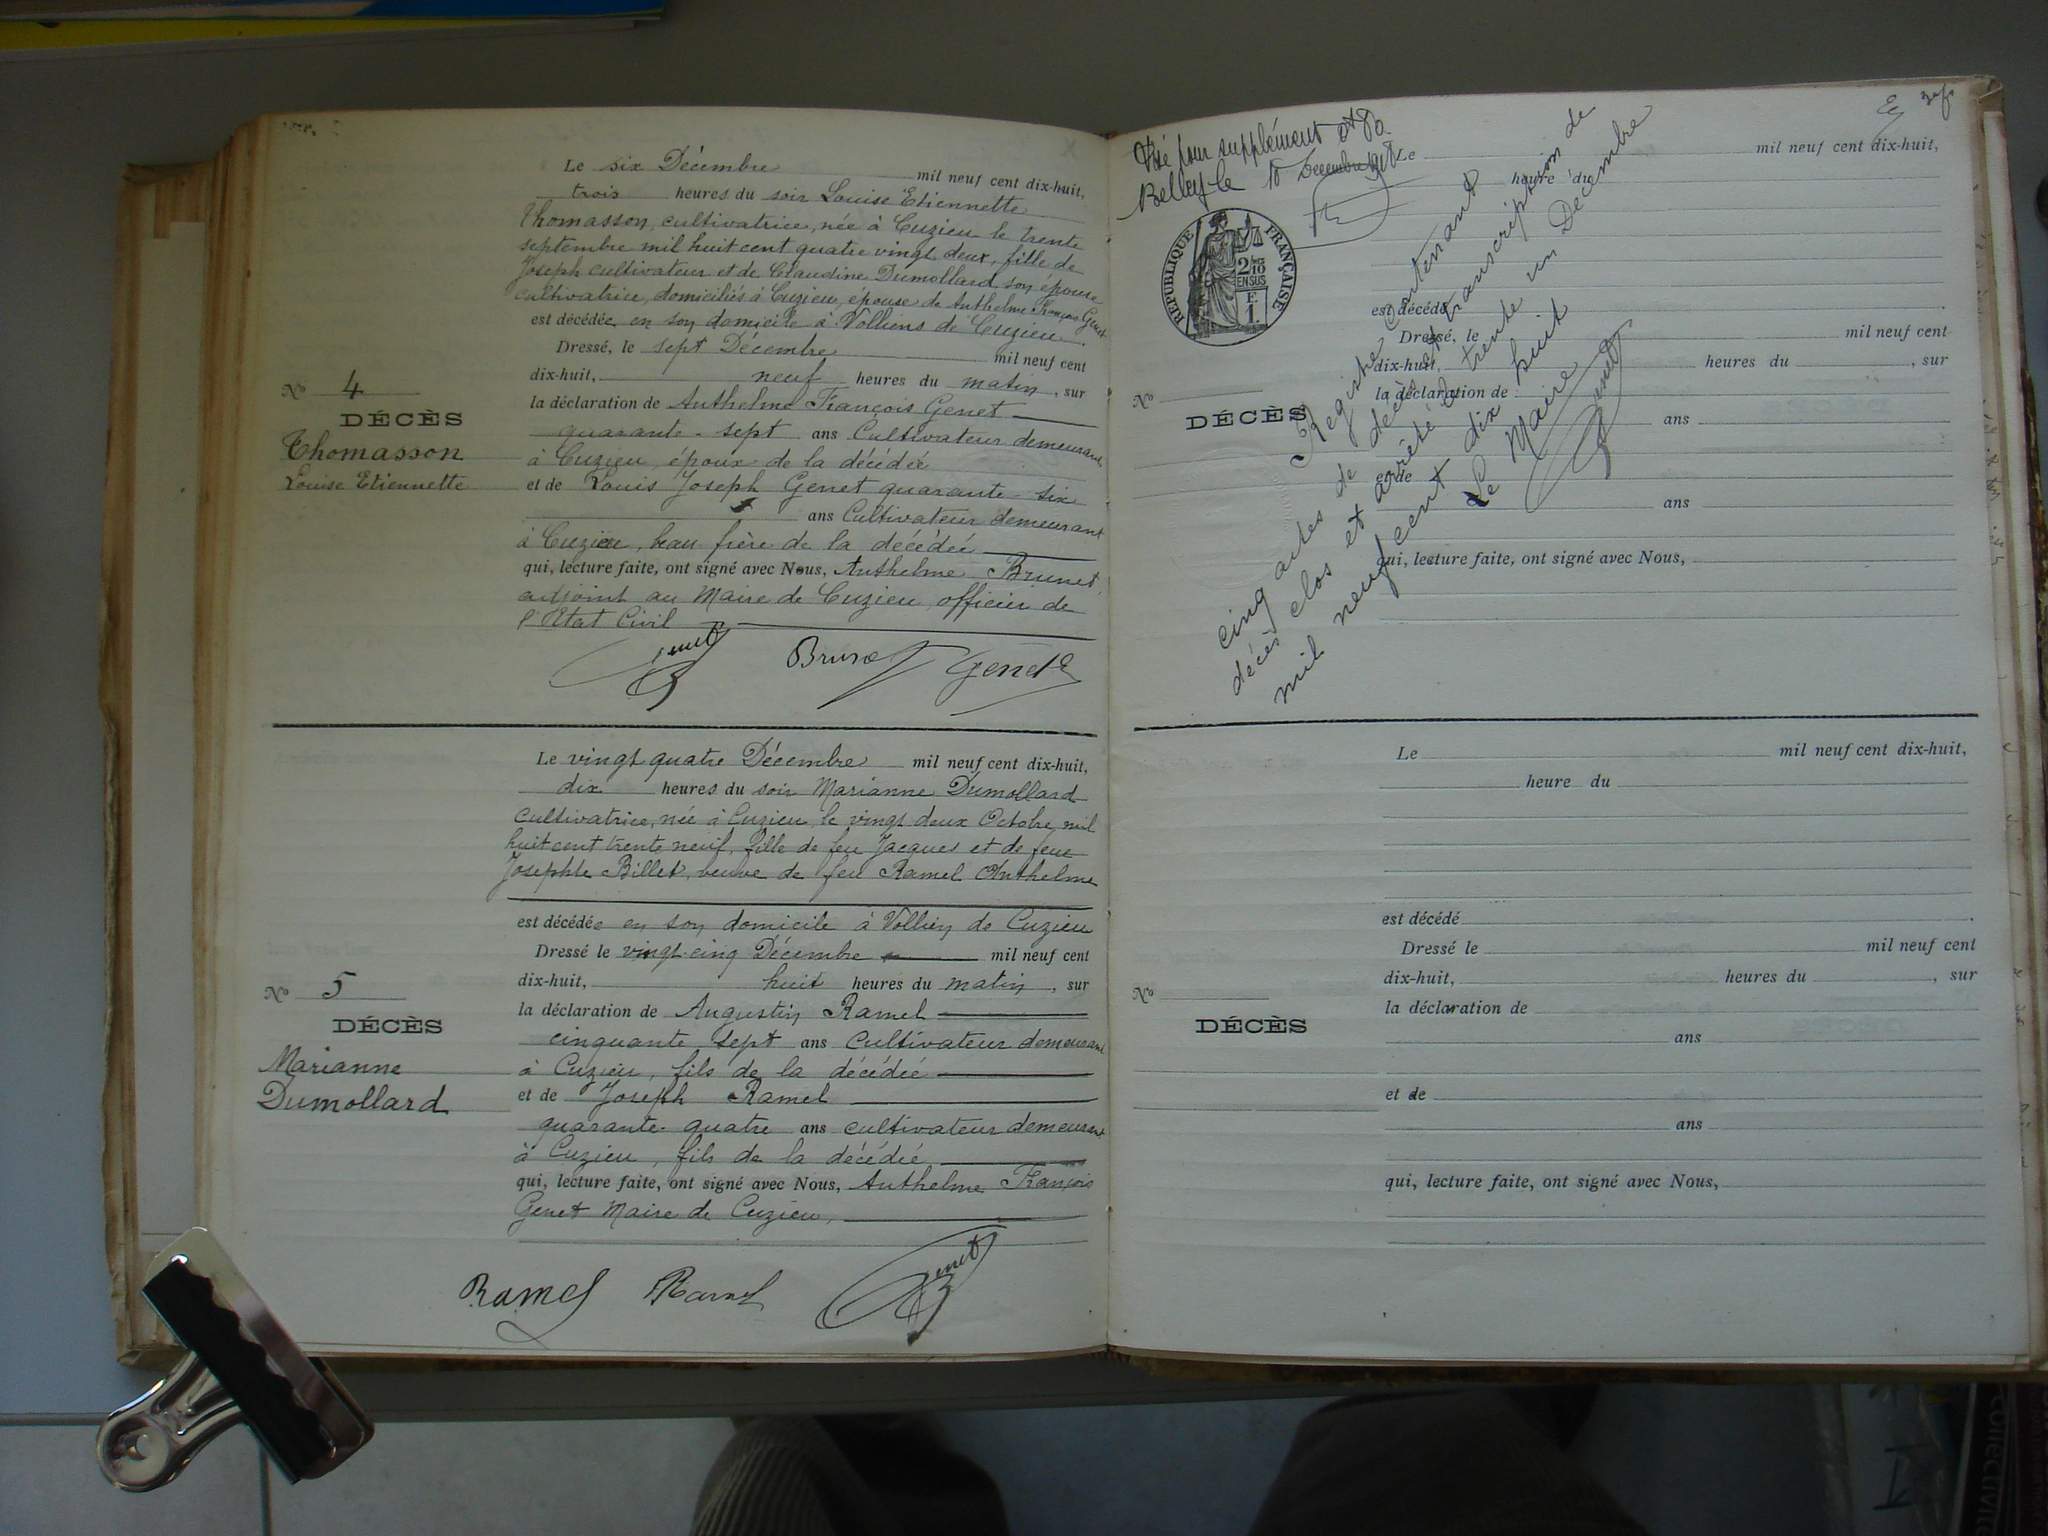 Le six Décembre mil neuf cent dix-huit,
trois heures du soir Louise Etiennette
Thomasson, cultivatrice, née à Cuzieu le trente
septembre mil huit cent quatre vingt deux, fille de
Joseph cultivateur et de Claudine Dumollard son épouse
cultivatrice, domiciliés à Cuzieu, épouse de Anthelme François Genet
est décédée en son domicile à Volliens de Cuzieu.
Dressé, le sept Décembre mil neuf cent
dix-huit, neuf heures du matin, sur
No 4
la déclaration de Anthelme François Genet
DÉCÈS
quarante-sept ans Cultivateur demeurant
Thomasson
à Cuzieu, époux de la décédée
Louise Etiennette
et de Louis Joseph Genet quarante-six
ans Cultivateur demeurant
à Cuzieu, beau frère de la décédée
qui, lecture faite, ont signé avec Nous, Anthelme Brunet
adjoint au Maire de Cuzieu, officier de
l'Etat Civil
Genet Brunet Genet
Le vingt quatre Décembre mil neuf cent dix-huit,
dix heures du soir Marianne Dumollard
cultivatrice, née à Cuzieu, le vingt deux Octobre mil
huit cent trente neuf, fille de feu Jacques et de feue
Josephte Billet, veuve de feu Ramel Anthelme
est décédée en son domicile à Vollien de Cuzieu
Dressé le vingt-cinq Décembre mil neuf cent
dix-huit, huit heures du matin, sur
No 5
la déclaration de Augustin Ramel
DÉCÈS
cinquante sept ans Cultivateur demeurant
Marianne
à Cuzieu, fils de la décédée
Dumollard
et de Joseph Ramel
quarante-quatre ans cultivateur demeurant
à Cuzieu, fils de la décédée
qui, lecture faite, ont signé avec Nous, Anthelme François
Genet Maire de Cuzieu,
Ramel Ramel Genet
Visé pour supplément
Belley le 18 Décembre 1918
RÉPUBLIQUE FRANÇAISE
2/10
EN SUS
F.
1.
Registre contenant
cinq actes de décès et transcription de
décès clos et arrêté le trente un Décembre
mil neuf cent dix huit
Le Maire
Genet
Le mil neuf cent dix-huit,
heure du
est décédé
Dressé, le mil neuf cent
dix-huit, heures du , sur
No
la déclaration de
DÉCÈS
ans
et de
ans
qui, lecture faite, ont signé avec Nous,
Le mil neuf cent dix-huit,
heure du
est décédé
Dressé le mil neuf cent
dix-huit, heures du , sur
No
la déclaration de
DÉCÈS
ans
et de
ans
qui, lecture faite, ont signé avec Nous,